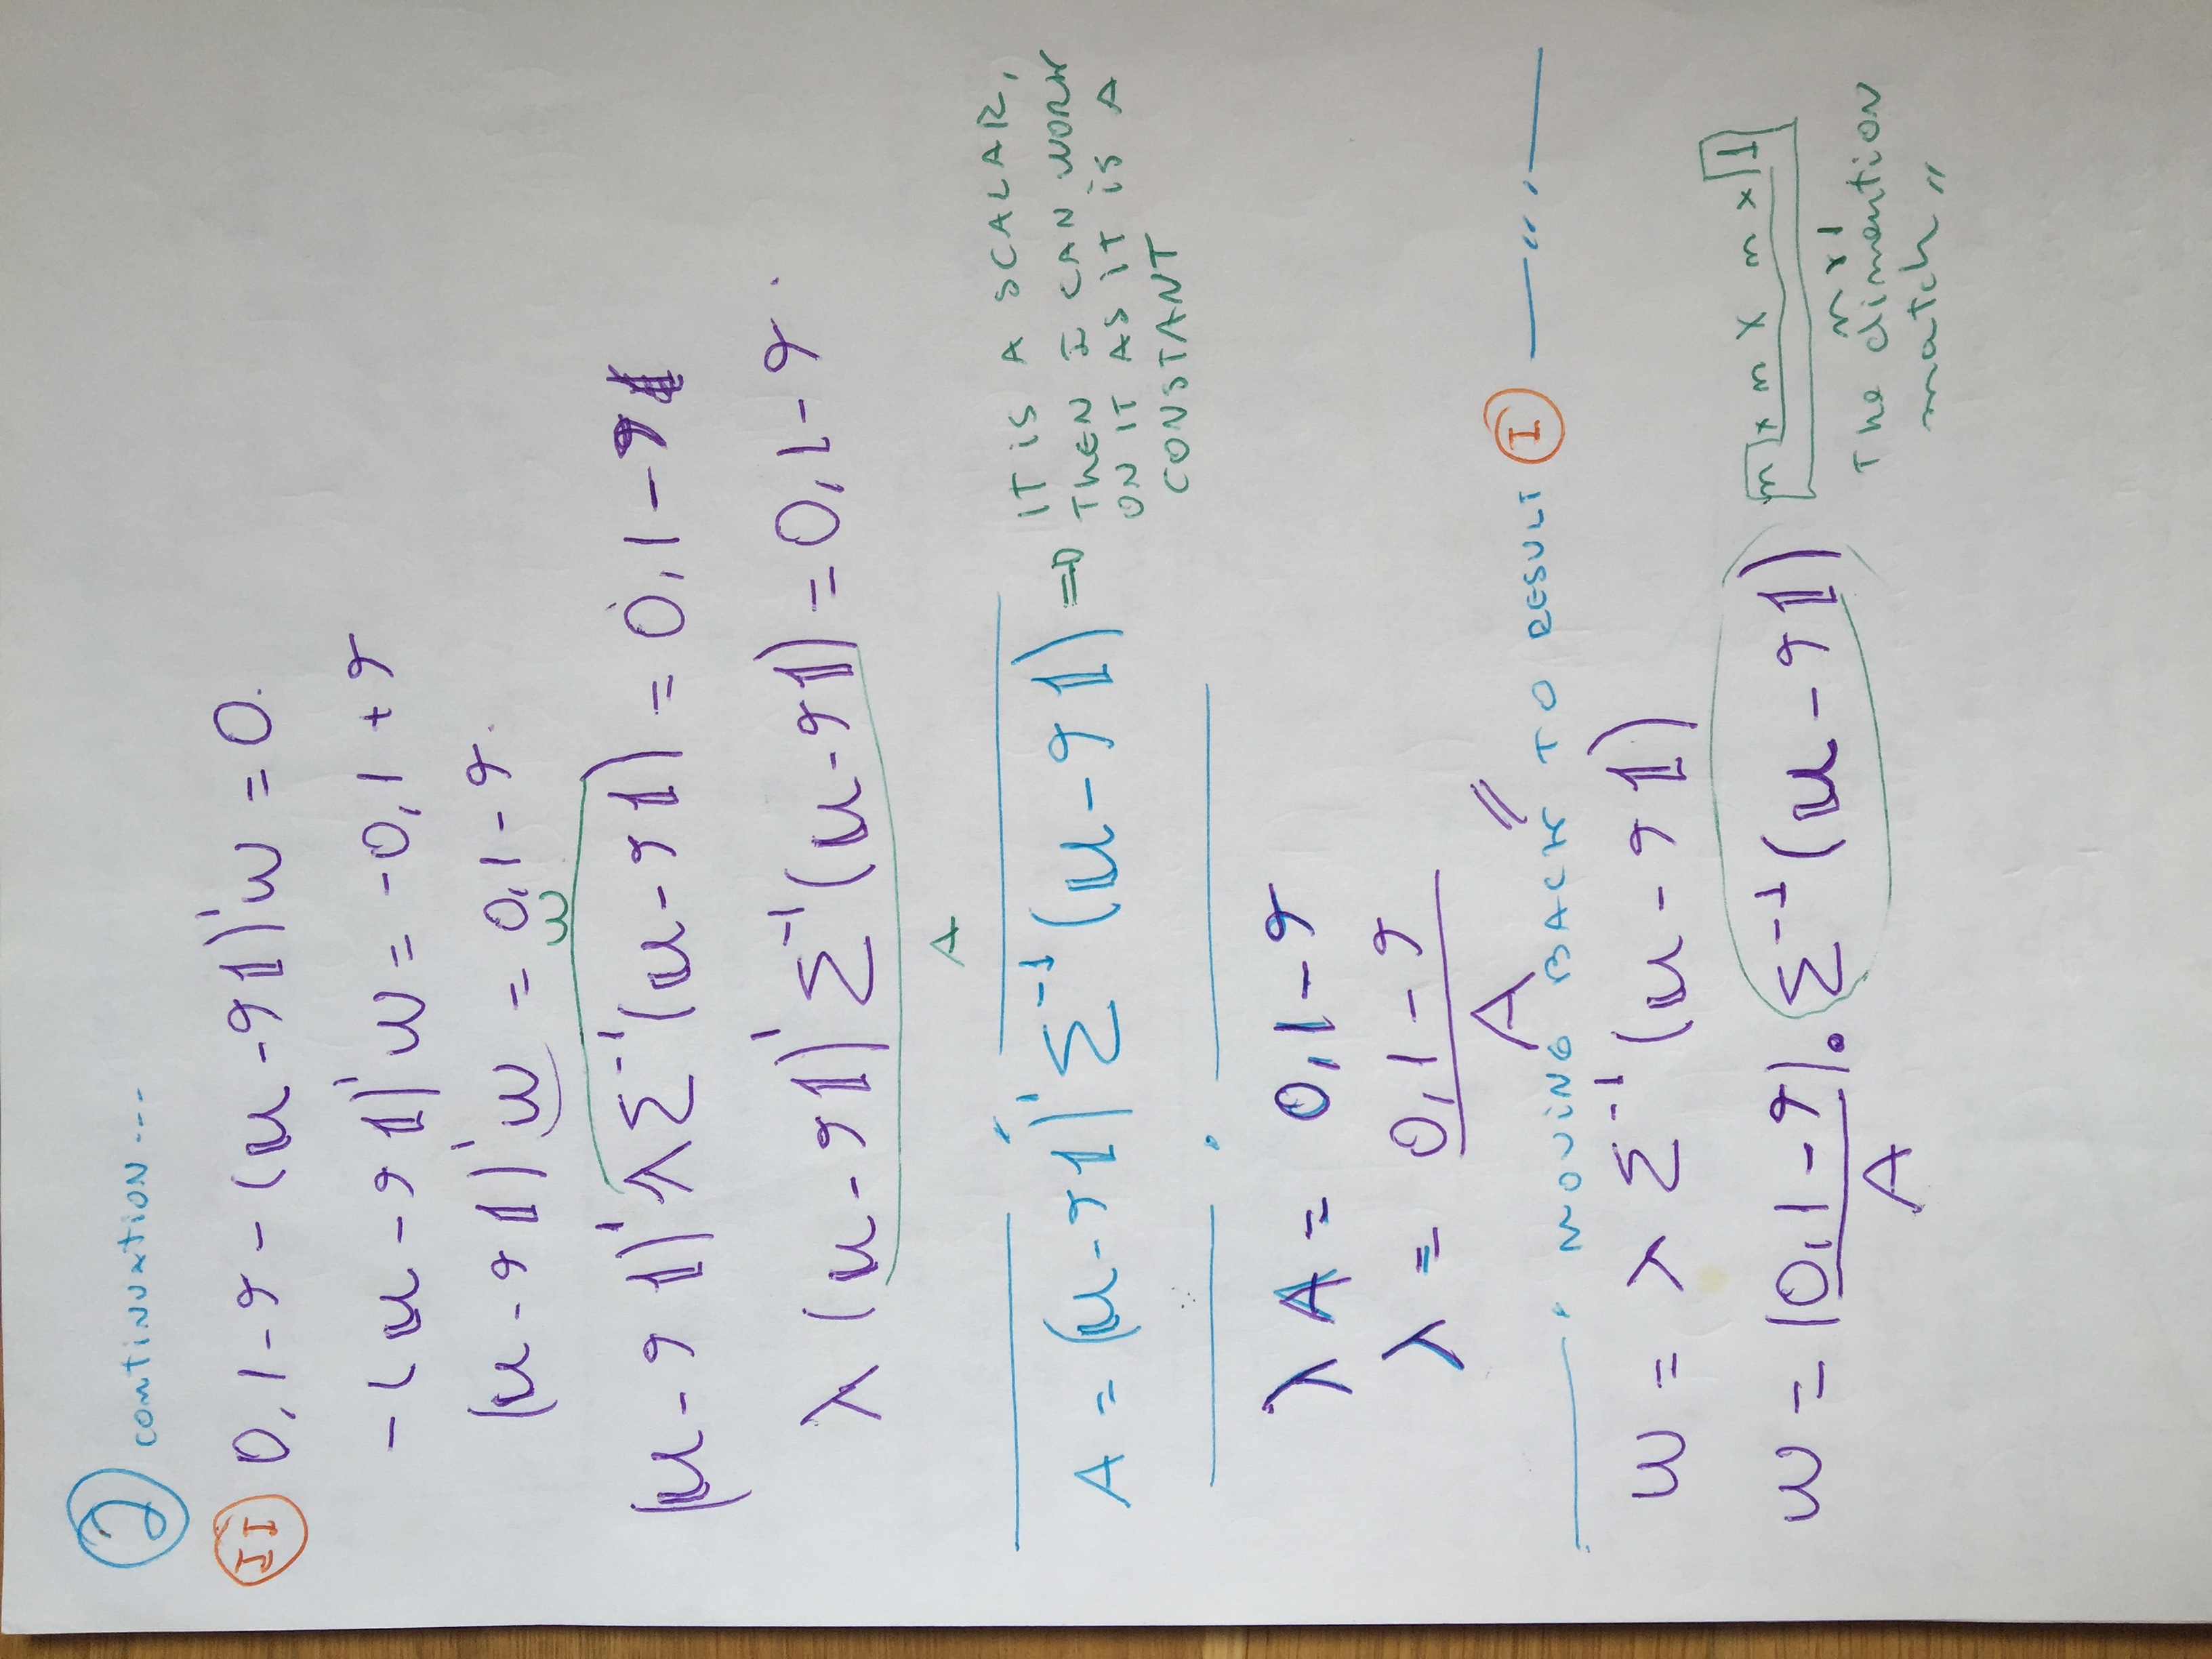 2 continuation ---
II 0,1 - r - (μ - r𝟙)'w = 0.
-(μ - r𝟙)'w = -0,1 + r
(μ - r𝟙)'w = 0,1 - r.
w
(μ - r𝟙)'λΣ⁻¹(μ - r𝟙) = 0,1 - r
λ(μ - r𝟙)'Σ⁻¹(μ - r𝟙) = 0,1 - r.
A
A = (μ - r𝟙)'Σ⁻¹(μ - r𝟙) ⇒ IT IS A SCALAR,
THEN I CAN WORK
ON IT AS IT IS A
CONSTANT
λA = 0,1 - r
λ = 0,1 - r
A //
MOVING BACK TO RESULT I
w = λΣ⁻¹(μ - r𝟙)
w = (0,1 - r) . Σ⁻¹(μ - r𝟙) n x n x n x 1
A
n x 1
The dimention
match //